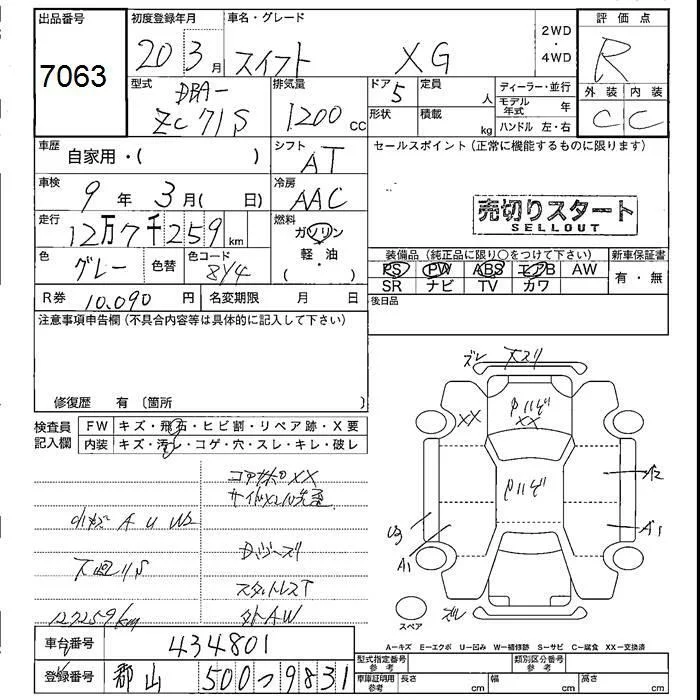 出品番号
7063
初度登録年月
20 3月
車名・グレード
スイフト XG
2WD・4WD
評価点
R
外装 内装
C C
型式
DBA-
ZC71S
排気量
1200 cc
ドア 5
定員 人
形状
積載 kg
ディーラー・並行
モデル年式 年
ハンドル 左・右
車歴
自家用・( )
シフト
AT
セールスポイント(正常に機能するものに限ります)
車検
9年 3月( 日)
冷房
AAC
売切りスタート
SELLOUT
走行
12万7千259km
燃料
ガソリン
軽・油
( )
色
グレー
色替
色コード
装備品(純正品に限り○をつけて下さい)
新車保証書
PS PW ABS エアB AW
SR ナビ TV カワ
有・無
R券 10.090 円
名変期限 月 日
後日品
注意事項申告欄(不具合内容等は具体的に記入して下さい)
修復歴 有(箇所 )
検査員記入欄
FW キズ・飛石・ヒビ割・リペア跡・X要
内装 キズ・汚れ・コゲ・穴・スレ・キレ・破レ
コアサポXX
小キズ A U W2
スタットレスT
127259km
タトAW
ズレ
XX
XX
A2
A1
U3
A1
ズレ
スペア
A-キズ E-エクボ U-凹み W-補修跡 S-サビ C-腐食 XX-交換済
車台番号
434801
登録番号
郡山 500つ9831
型式指定番号 参考
類別区分番号 参考
車庫証明用 参考
長さ cm
幅 cm
高さ cm